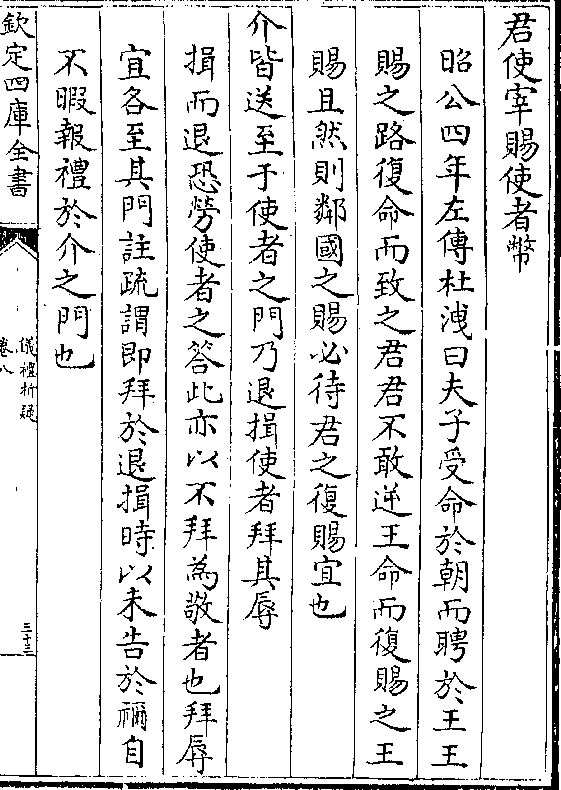 君使宰賜使者幣
昭公四年左傳杜洩曰夫子受命於朝而聘於王王
賜之路復命而致之君君不敢逆王命而復賜之王
賜且然則鄰國之賜必待君之復賜宜也
介皆送至于使者之門乃退揖使者拜其辱
揖而退恐勞使者之答此亦以不拜為敬者也拜辱
宜各至其門註疏謂即拜於退揖時以未告於禰自
不暇報禮於介之門也
欽定四庫全書
儀禮析疑
卷八
三十三